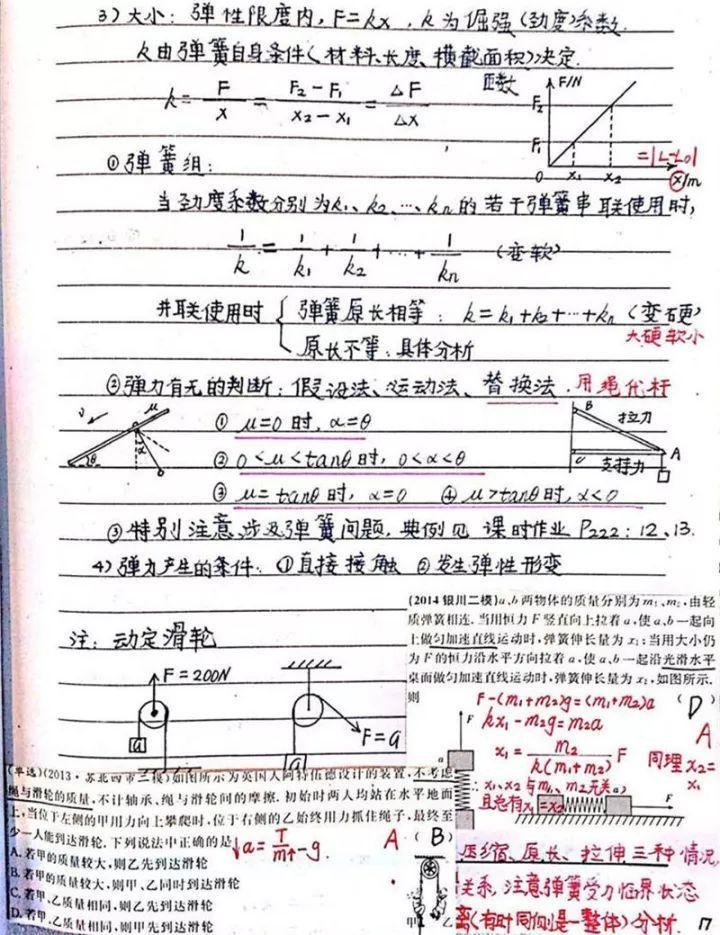 3) 大小: 弹性限度内, F=kx, k为倔强(劲度)系数.
k由弹簧自身条件(材料、长度、横截面积)决定.
k = F/x = (F₂-F₁)/(x₂-x₁) = ΔF/Δx 匝数
F/N
F₂
F₁
0 x₁ x₂ x/m
=|L-L₀|
①弹簧组:
当劲度系数分别为k₁、k₂、…、kₙ的若干弹簧串联使用时,
1/k = 1/k₁ + 1/k₂ + … + 1/kₙ (变软)
并联使用时 { 弹簧原长相等: k=k₁+k₂+…+kₙ (变硬)
大硬软小
原长不等: 具体分析
②弹力有无的判断: 假设法、运动法、替换法. 用绳代杆
① μ=0时, α=θ
② 0<μ<tanθ时, 0<α<θ
③ μ=tanθ时, α=0 ④ μ>tanθ时, α<0
v μ
α
θ
B 拉力
A
C 支持力
③特别注意涉及弹簧问题, 典例见 课时作业 P222: 12、13.
4) 弹力产生的条件: ①直接接触 ②发生弹性形变
注: 动定滑轮
F=200N
a
F=G
G
(2014 银川二模)a、b 两物体的质量分别为 m₁、m₂, 由轻
质弹簧相连. 当用恒力 F 竖直向上拉着 a, 使 a、b 一起向
上做匀加速直线运动时, 弹簧伸长量为 x₁; 当用大小仍
为 F 的恒力沿水平方向拉着 a, 使 a、b 一起沿光滑水平
桌面做匀加速直线运动时, 弹簧伸长量为 x₂, 如图所示.
则 ( D )
F-(m₁+m₂)g=(m₁+m₂)a
A
kx₁-m₂g=m₂a
x₁ = m₂/(k(m₁+m₂)) F 同理 x₂=x₁
∴ x₁、x₂与m₁、m₂无关
且总有x₁=x₂
F
a
F
(单选)(2013·苏北四市三模)如图所示为英国人阿特伍德设计的装置, 不考虑
绳与滑轮的质量, 不计轴承、绳与滑轮间的摩擦. 初始时两人均站在水平地面
上, 当位于左侧的甲用力向上攀爬时, 位于右侧的乙始终用力抓住绳子, 最终至
少一人能到达滑轮. 下列说法中正确的是 A ( B )
a = T/m↑ - g.
A. 若甲的质量较大, 则乙先到达滑轮
B. 若甲的质量较大, 则甲、乙同时到达滑轮
C. 若甲、乙质量相同, 则乙先到达滑轮
D. 若甲、乙质量相同, 则甲先到达滑轮
甲 乙
压缩、原长、拉伸三种情况,
关系, 注意弹簧受力临界状态
离(有时同侧是一整体)分析.